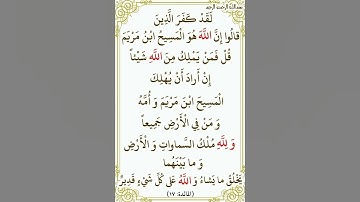 بسم الله الرحمن الرحيم
لَقَدْ كَفَرَ الَّذِينَ
قالُوا إِنَّ اللَّهَ هُوَ الْمَسِيحُ ابْنُ مَرْيَمَ
قُلْ فَمَنْ يَمْلِكُ مِنَ اللَّهِ شَيْئاً
إِنْ أَرادَ أَنْ يُهْلِكَ
الْمَسِيحَ ابْنَ مَرْيَمَ وَ أُمَّهُ
وَ مَنْ فِي الْأَرْضِ جَمِيعاً
وَ لِلَّهِ مُلْكُ السَّماواتِ وَ الْأَرْضِ
وَ ما بَيْنَهُما
يَخْلُقُ ما يَشاءُ وَ اللَّهُ عَلى كُلِّ شَيْءٍ قَدِيرٌ
(المائدة: ١٧)